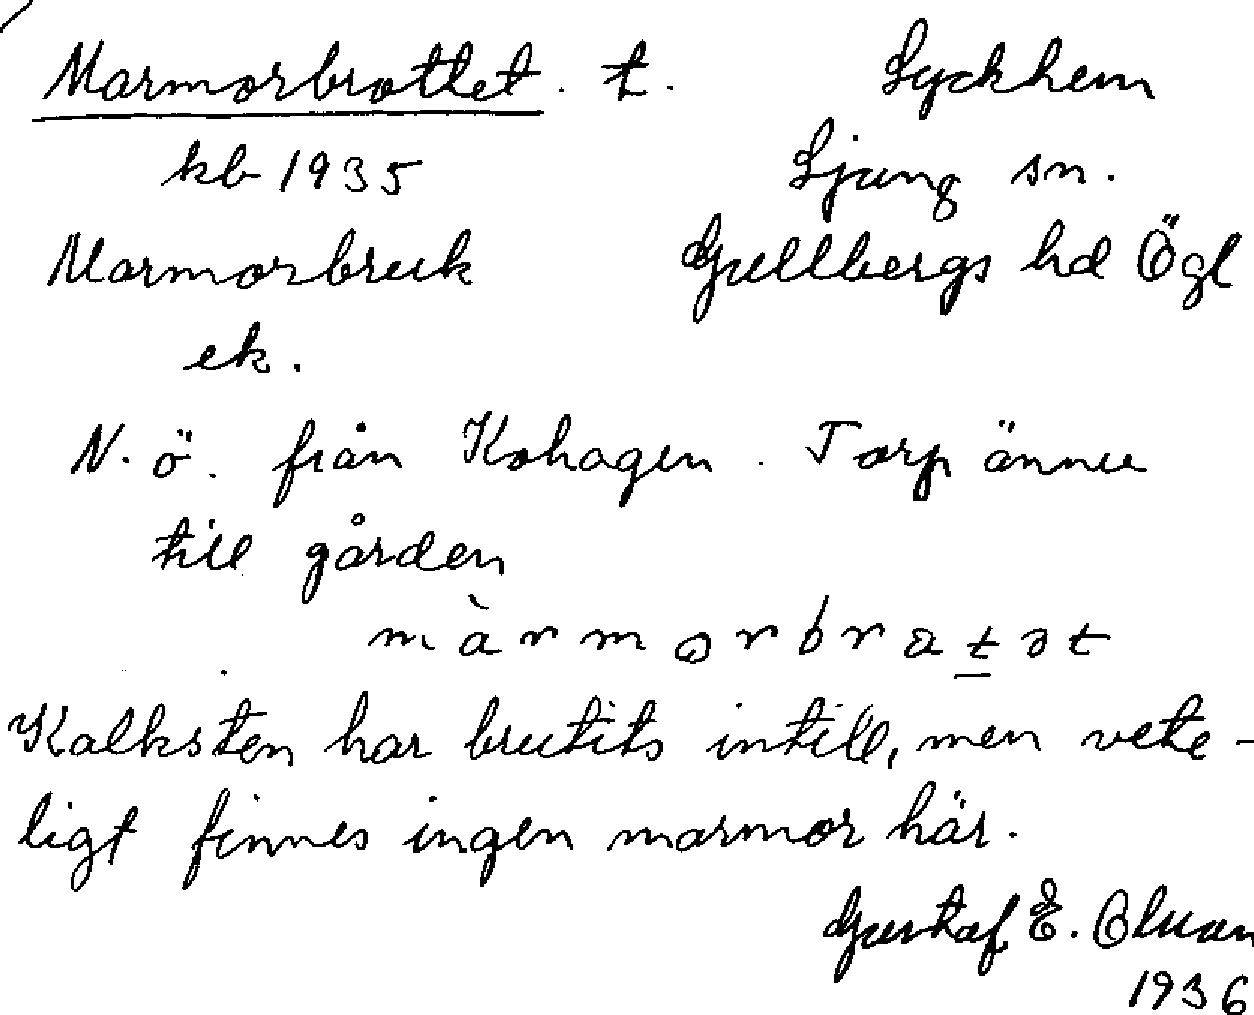 Marmorbrottet. t. Lyckhem
kb 1935 Ljung sn.
Marmorbruk Gullbergs hd Ögl
ek.
N. ö. från Kohagen. Torp ännu
till gården
màrmorbratət
Kalksten har brutits intill, men vete-
ligt finnes ingen marmor här.
Gustaf E.
1936